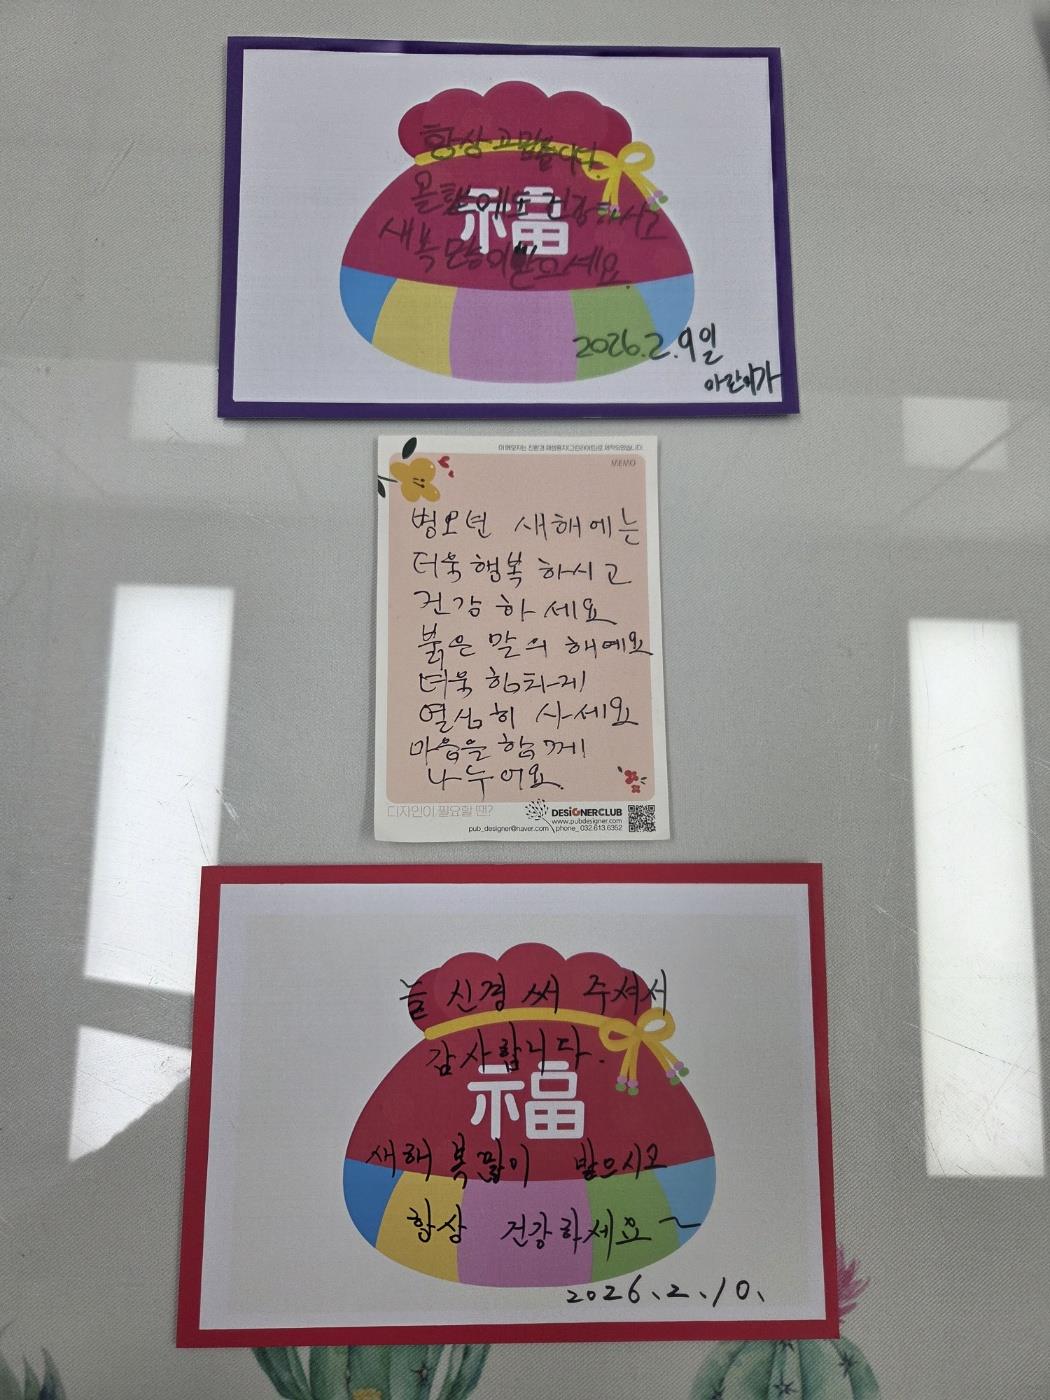 항상 고맙습니다.
올해에도 건강하시오
福
새복 많이 받으세요.
2026.2.9일
아란이가
이 메모지는 친환경 재생용지(그린라이트)로 제작되었습니다.
MEMO
병오년 새해에는
더욱 행복 하시고
건강 하세요
붉은 말의 해예요
더욱 힘차게
열심히 사세요
마음을 함께
나누어요.
디자인이 필요할 땐?
DESIGNERCLUB
www.pubdesigner.com
pub_designer@naver.com phone_ 032.613.6352
늘 신경 써 주셔서
감사합니다.
福
새해 복 많이 받으시고
항상 건강하세요~
2026.2.10.